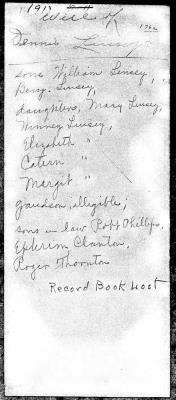 1917
Will of
1762
Dennis Linsey
sons William Linsey,
Benj. Linsey,
daughters, Mary Linsey,
Winney Linsey,
Elizebeth "
Catern "
Margit "
grandson, illegible;
sons in law Robt Phillips,
Ephrim Clanton,
Roger Thornton
Record Book lost